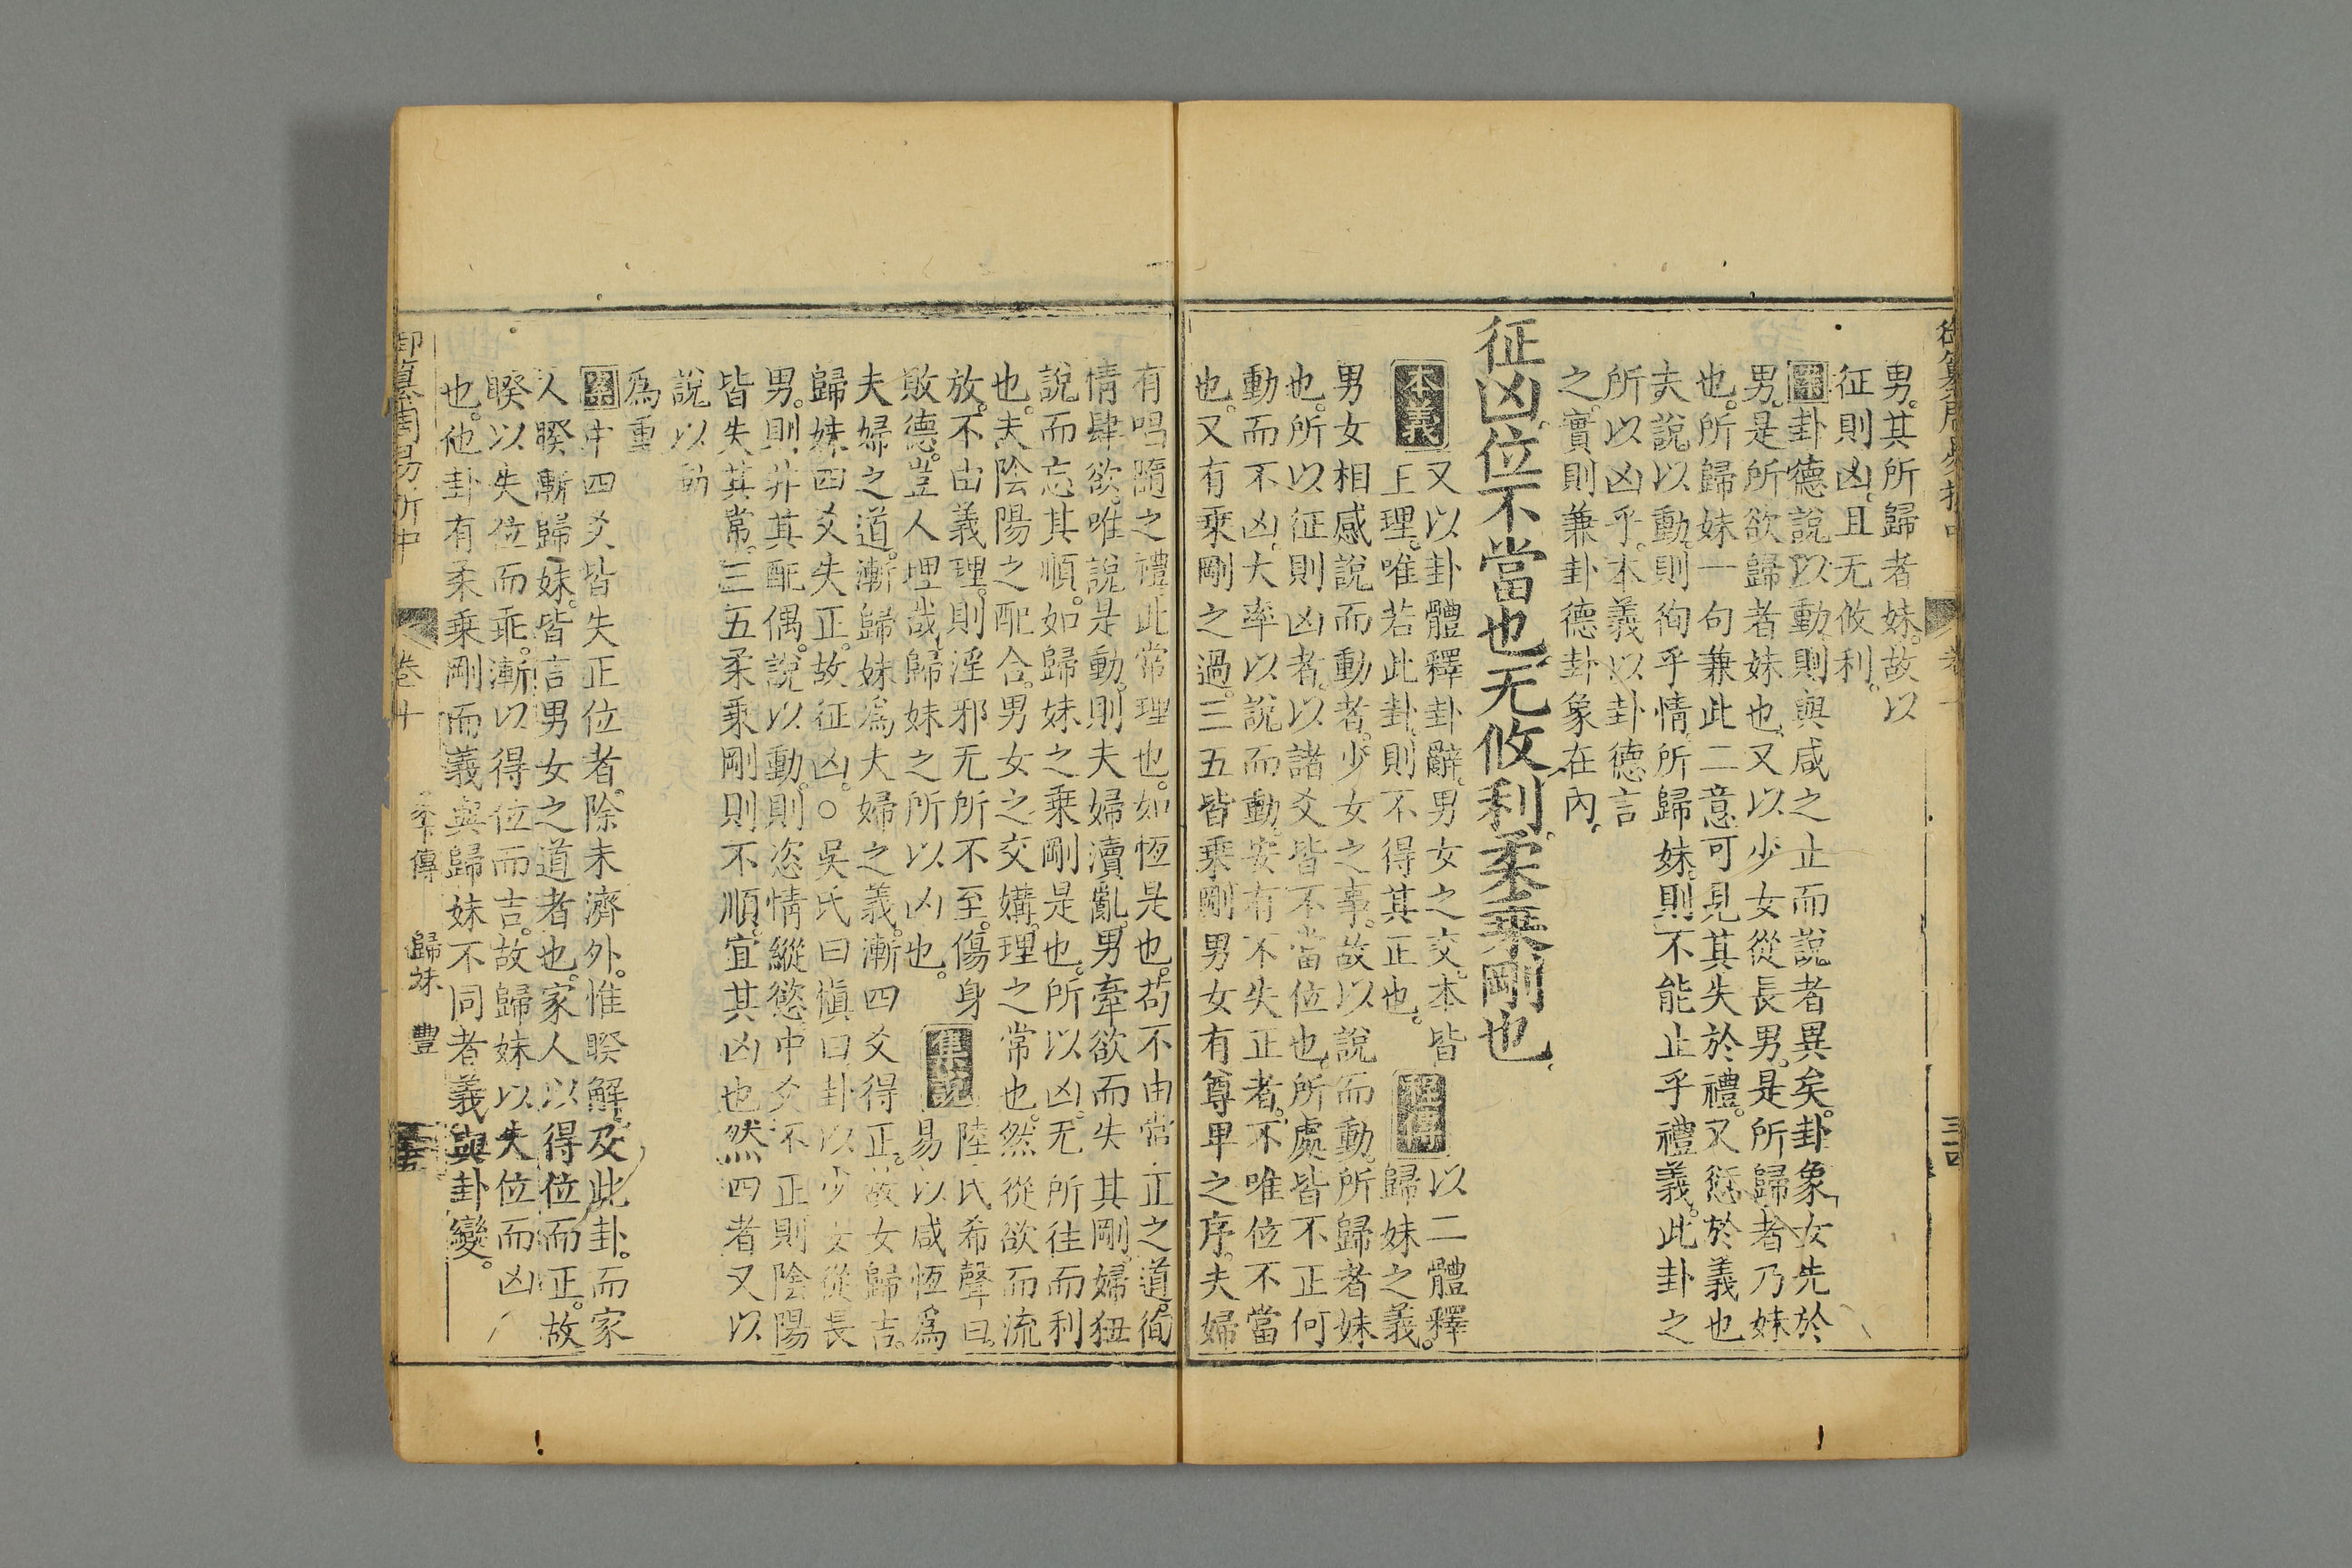 男。其所歸者妹。故以
征則凶。且无攸利。
案卦德說以動。則與咸之止而說者異矣。卦象女先於
男。是所欲歸者妹也。又以少女從長男。是所歸者乃妹
也。所歸妹一句兼此二意可見其失於禮。又愆於義也
夫說以動。則徇乎情。所歸妹。則不能止乎禮義。此卦之
所以凶乎。本義以卦德言
之。實則兼卦德卦象在內。
征凶。位不當也。无攸利。柔乘剛也。
本義
又以卦體釋卦辭。男女之交。本皆
正理。唯若此卦。則不得其正也。
程傳
以二體釋
歸妹之義。
男女相感說而動者。少女之事。故以說而動。所歸者妹
也。所以征則凶者。以諸爻皆不當位也。所處皆不正何
動而不凶。大率以說而動。安有不失正者。不唯位不當
也。又有乘剛之過。三五皆乘剛男女有尊卑之序。夫婦
有唱隨之禮。此常理也。如恆是也。苟不由常正之道。徇
情肆欲。唯說是動。則夫婦瀆亂。男牽欲而失其剛。婦狃
說而忘其順。如歸妹之乘剛是也。所以凶。无所往而利
也。夫陰陽之配合。男女之交媾。理之常也。然從欲而流
放。不由義理。則淫邪无所不至。傷身
敗德。豈人理哉。歸妹之所以凶也。
集說
陸氏希聲曰。
易以咸恆爲
夫婦之道。漸歸妹爲夫婦之義。漸四爻得正。故女歸吉。
歸妹四爻失正。故征凶。○吳氏曰愼曰卦以少女從長
男。則非其配偶。說以動。則恣情縱慾。中爻不正則陰陽
皆失其常。三五柔乘剛則不順。宜其凶也然四者又以
說以動
爲重
案中四爻皆失正位者。除未濟外。惟睽解及此卦。而家
人睽漸歸妹。皆言男女之道者也。家人以得位而正。故
睽以失位而乖。漸以得位而吉。故歸妹以失位而凶
也。他卦有柔乘剛而義與歸妹不同者義與卦變。
御纂周易折中
卷十
彖下傳
歸妹
豐
三五
御纂周易折中
卷十
三四